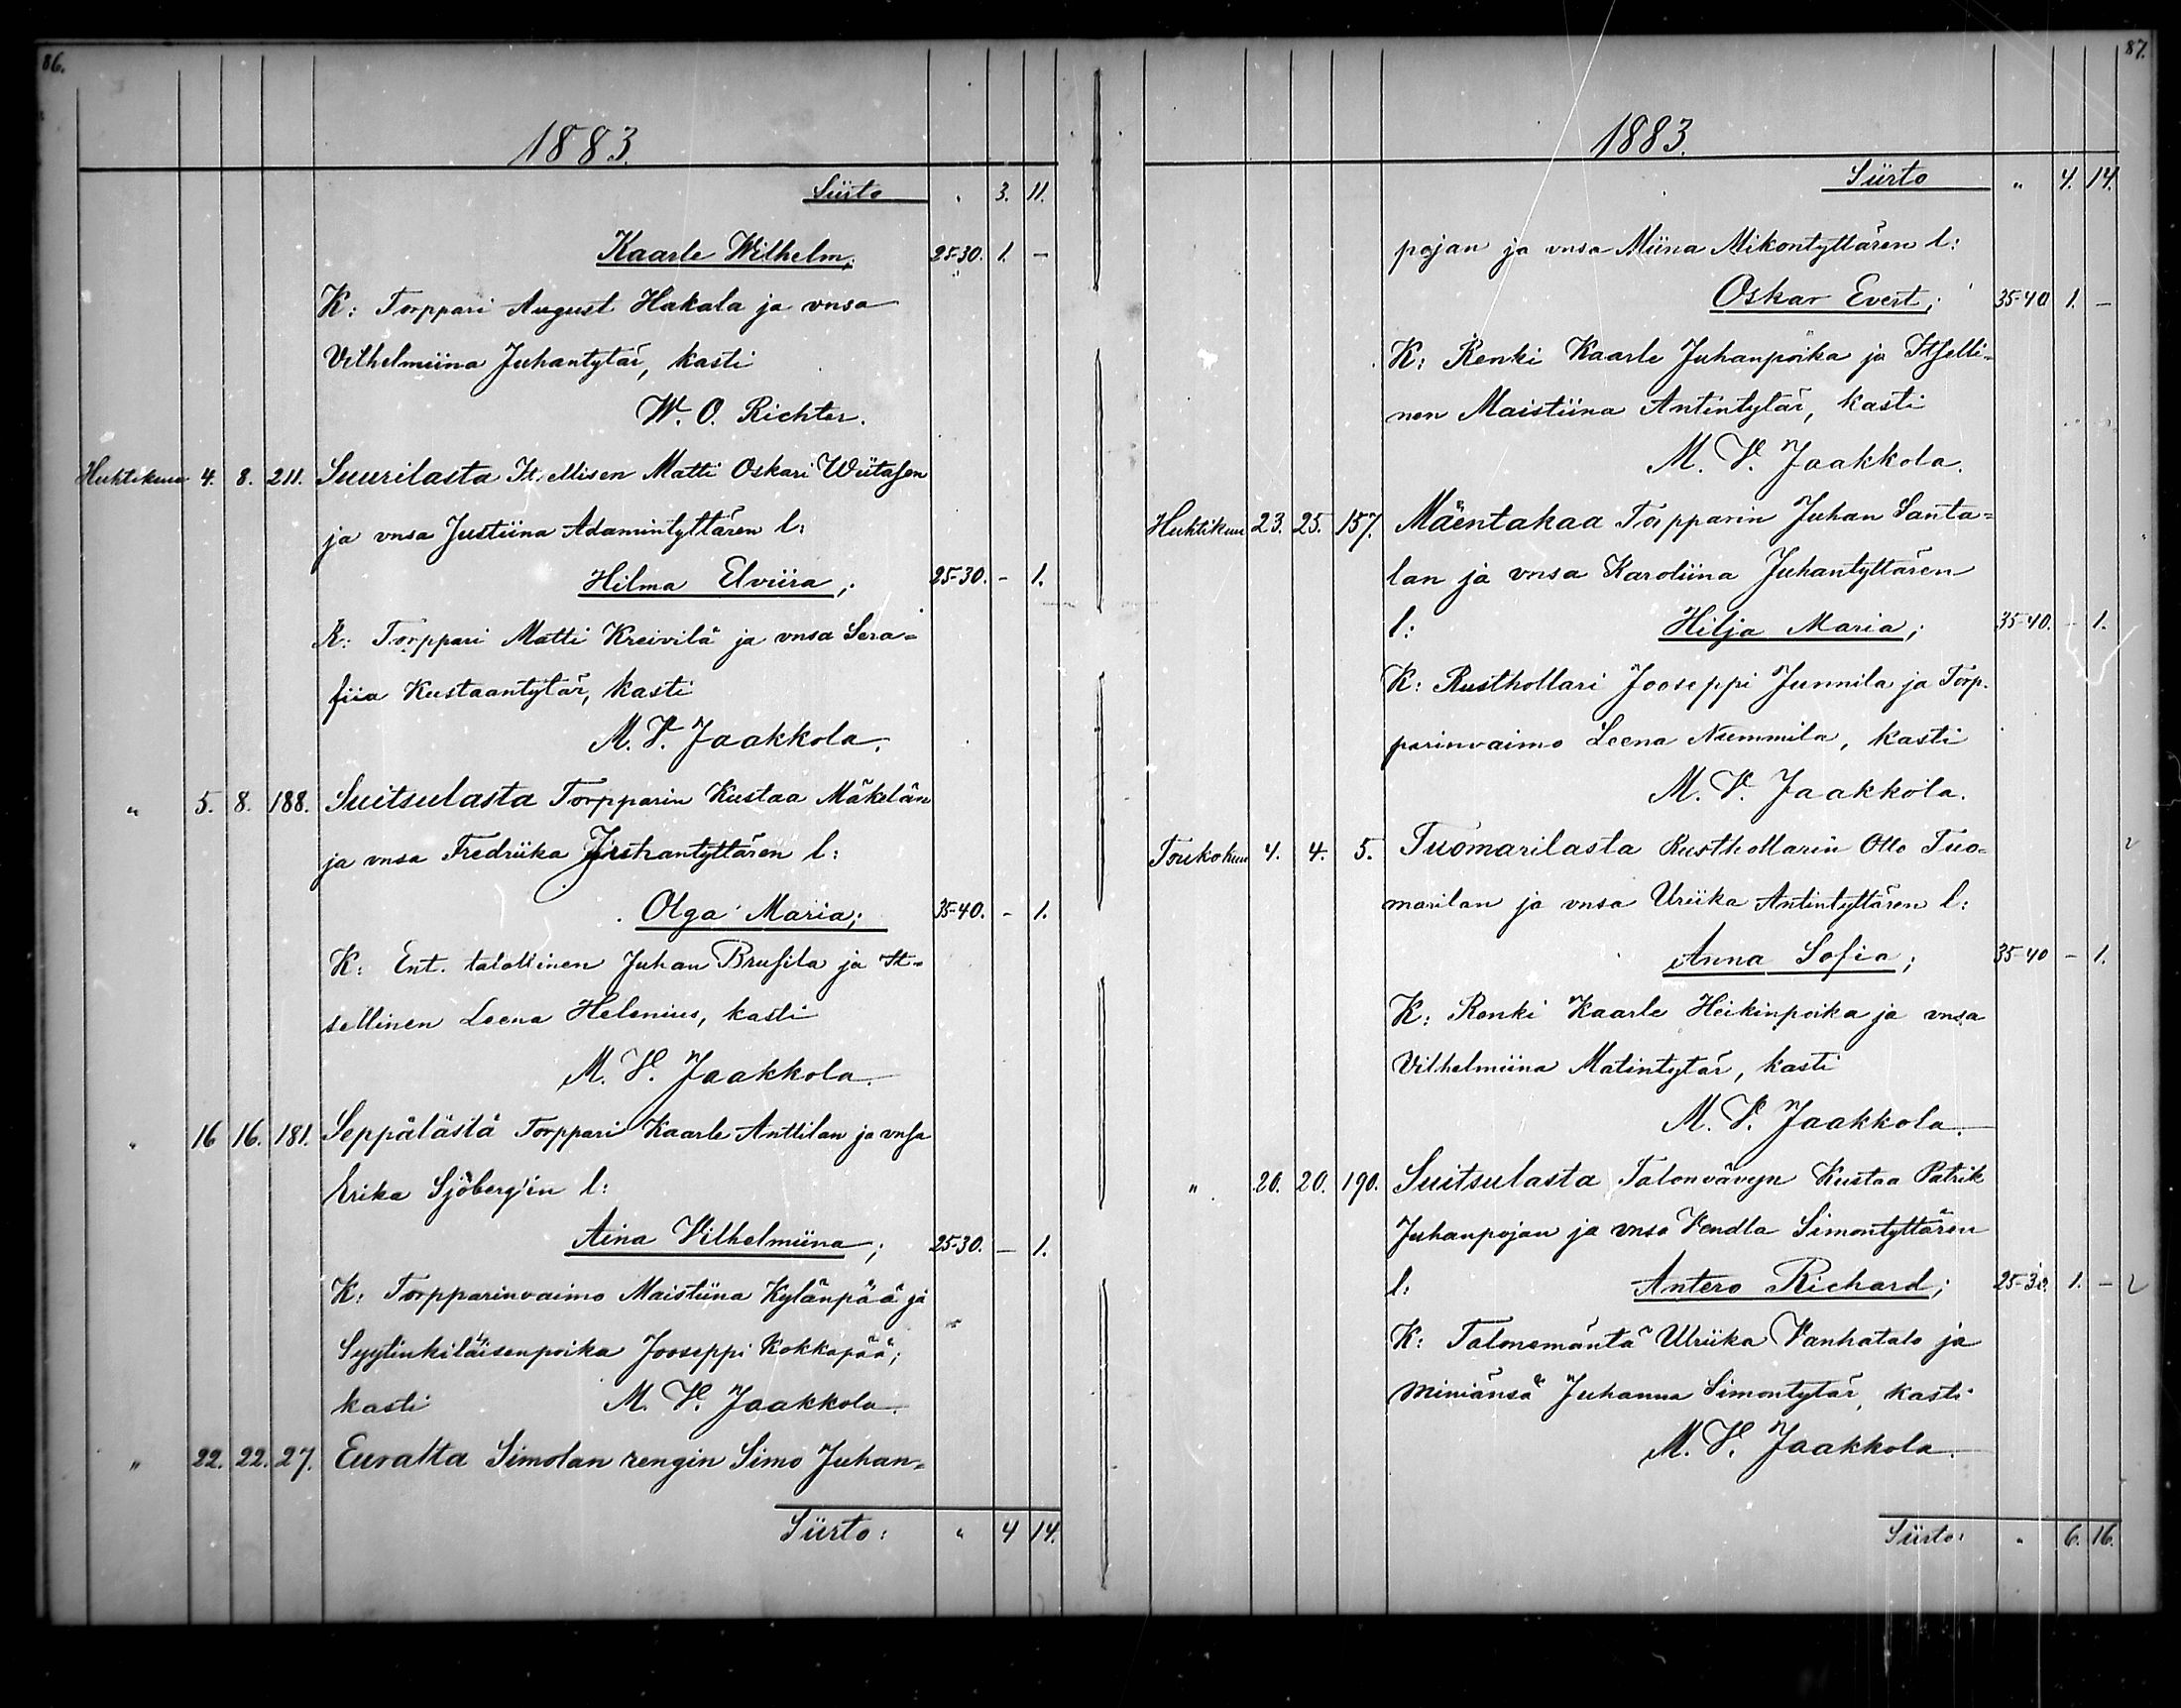 86.
1883.
Siirto " 3. 11.
Kaarle Wilhelm; 25-30. 1. -
K: Torppari August Hakala ja vnsa
Vilhelmiina Juhantytär, kasti
W. O. Richter.
Huhtikuu 4. 8. 211. Suurilasta It.ellisen Matti Oskari Wiitasen
ja vnsa Justiina Adamintyttären l:
Hilma Elviira; 25-30. - 1.
K: Torppari Matti Kreivilä ja vnsa Sera=
fiia Kustaantytär, kasti
M. V. Jaakkola.
" 5. 8. 188. Suitsulasta Torpparin Kustaa Mäkelän
ja vnsa Fredriika Juhantyttären l:
Olga Maria; 35-40. - 1.
K: Ent. talollinen Juhan Brusila ja It=
sellinen Leena Helenius, kasti
M. V. Jaakkola.
" 16 16. 181. Seppälästä Torppari Kaarle Anttilan ja vnsa
Erika Sjöberg'in l:
Aina Vilhelmiina; 25-30. - 1.
K: Torpparinvaimo Maistiina Kylänpää ja
Syytinkiläisenpoika Jooseppi Kokkapää;
kasti M. V. Jaakkola.
" 22. 22. 27. Euralta Simolan rengin Simo Juhan=
Siirto: " 4 14.
87.
1883.
Siirto " 4. 14.
pojan ja vnsa Miina Mikontyttären l:
Oskar Evert; 35-40 1. -
K: Renki Kaarle Juhanpoika ja Itselli=
nen Maistiina Antintytär, kasti
M. V. Jaakkola.
Huhtikuu 23. 25. 157. Mäentakaa Torpparin Juhan Santa=
lan ja vnsa Karoliina Juhantyttären
l: Hilja Maria; 35-40. - 1.
K: Rusthollari Jooseppi Junnila ja Torp-
parinvaimo Leena Nummila, kasti
M. V. Jaakkola.
Toukokuu 4. 4. 5. Tuomarilasta Rusthollarin Otto Tuo=
marilan ja vnsa Uriika Antintyttären l:
Anna Sofia; 35-40 - 1.
K: Renki Kaarle Heikinpoika ja vnsa
Vilhelmiina Matintytär, kasti
M. V. Jaakkola.
" 20. 20. 190. Suitsulasta Talonvävyn Kustaa Patrik
Juhanpojan ja vnsa Vendla Simontyttären
l: Antero Richard; 25-30. 1. -
K: Talonemäntä Ulriika Vanhatalo ja
miniänsä Juhanna Simontytär, kasti
M. V. Jaakkola.
Siirto: " 6. 16.